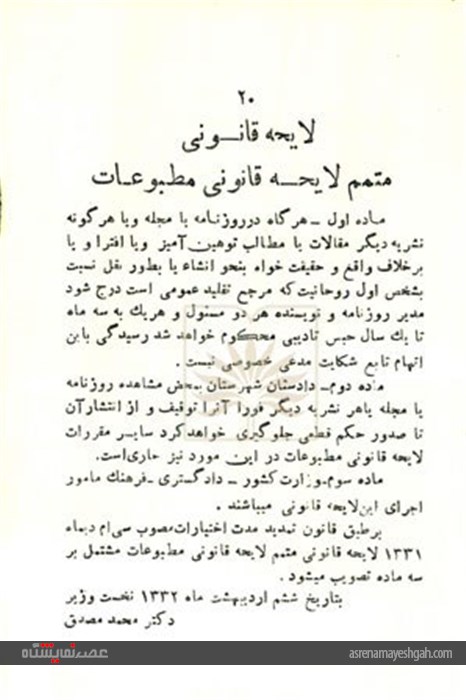 ۲۰
لایحه قانونی
متمم لایحه قانونی مطبوعات
ماده اول ــ هرگاه در روزنامه یا مجله ویا هرگونه
نشریه دیگر مقالات یا مطالب توهین آمیز ویا افترا و یا
برخلاف واقع و حقیقت خواه بنحو انشاء یا بطور نقل نسبت
بشخص اول روحانیت که مرجع تقلید عمومی است درج شود
مدیر روزنامه و نویسنده هر دو مسئول و هریك به سه ماه
تا یك سال حبس تادیبی محکوم خواهد شد رسیدگی باین
اتهام تابع شکایت مدعی خصوصی نیست .
ماده دوم ــ دادستان شهرستان بمحض مشاهده روزنامه
یا مجله یاهر نشریه دیگر فورا آنرا توقیف و از انتشار آن
تا صدور حکم قطعی جلوگیری خواهد کرد سایر مقررات
لایحه قانونی مطبوعات در این مورد نیز جاری است.
ماده سوم ــ وزارت کشور ــ دادگستری ــ فرهنك مامور
اجرای این لایحه قانونی میباشند .
برطبق قانون تمدید مدت اختیارات مصوب سی ام دیماه
۱۳۳۱ لایحه قانونی متمم لایحه قانونی مطبوعات مشتمل بر
سه ماده تصویب میشود .
بتاریخ ششم اردیبهشت ماه ۱۳۳۲ نخست وزیر
دکتر محمد مصدق
عصرنمایشگاه asrenamayeshgah.com